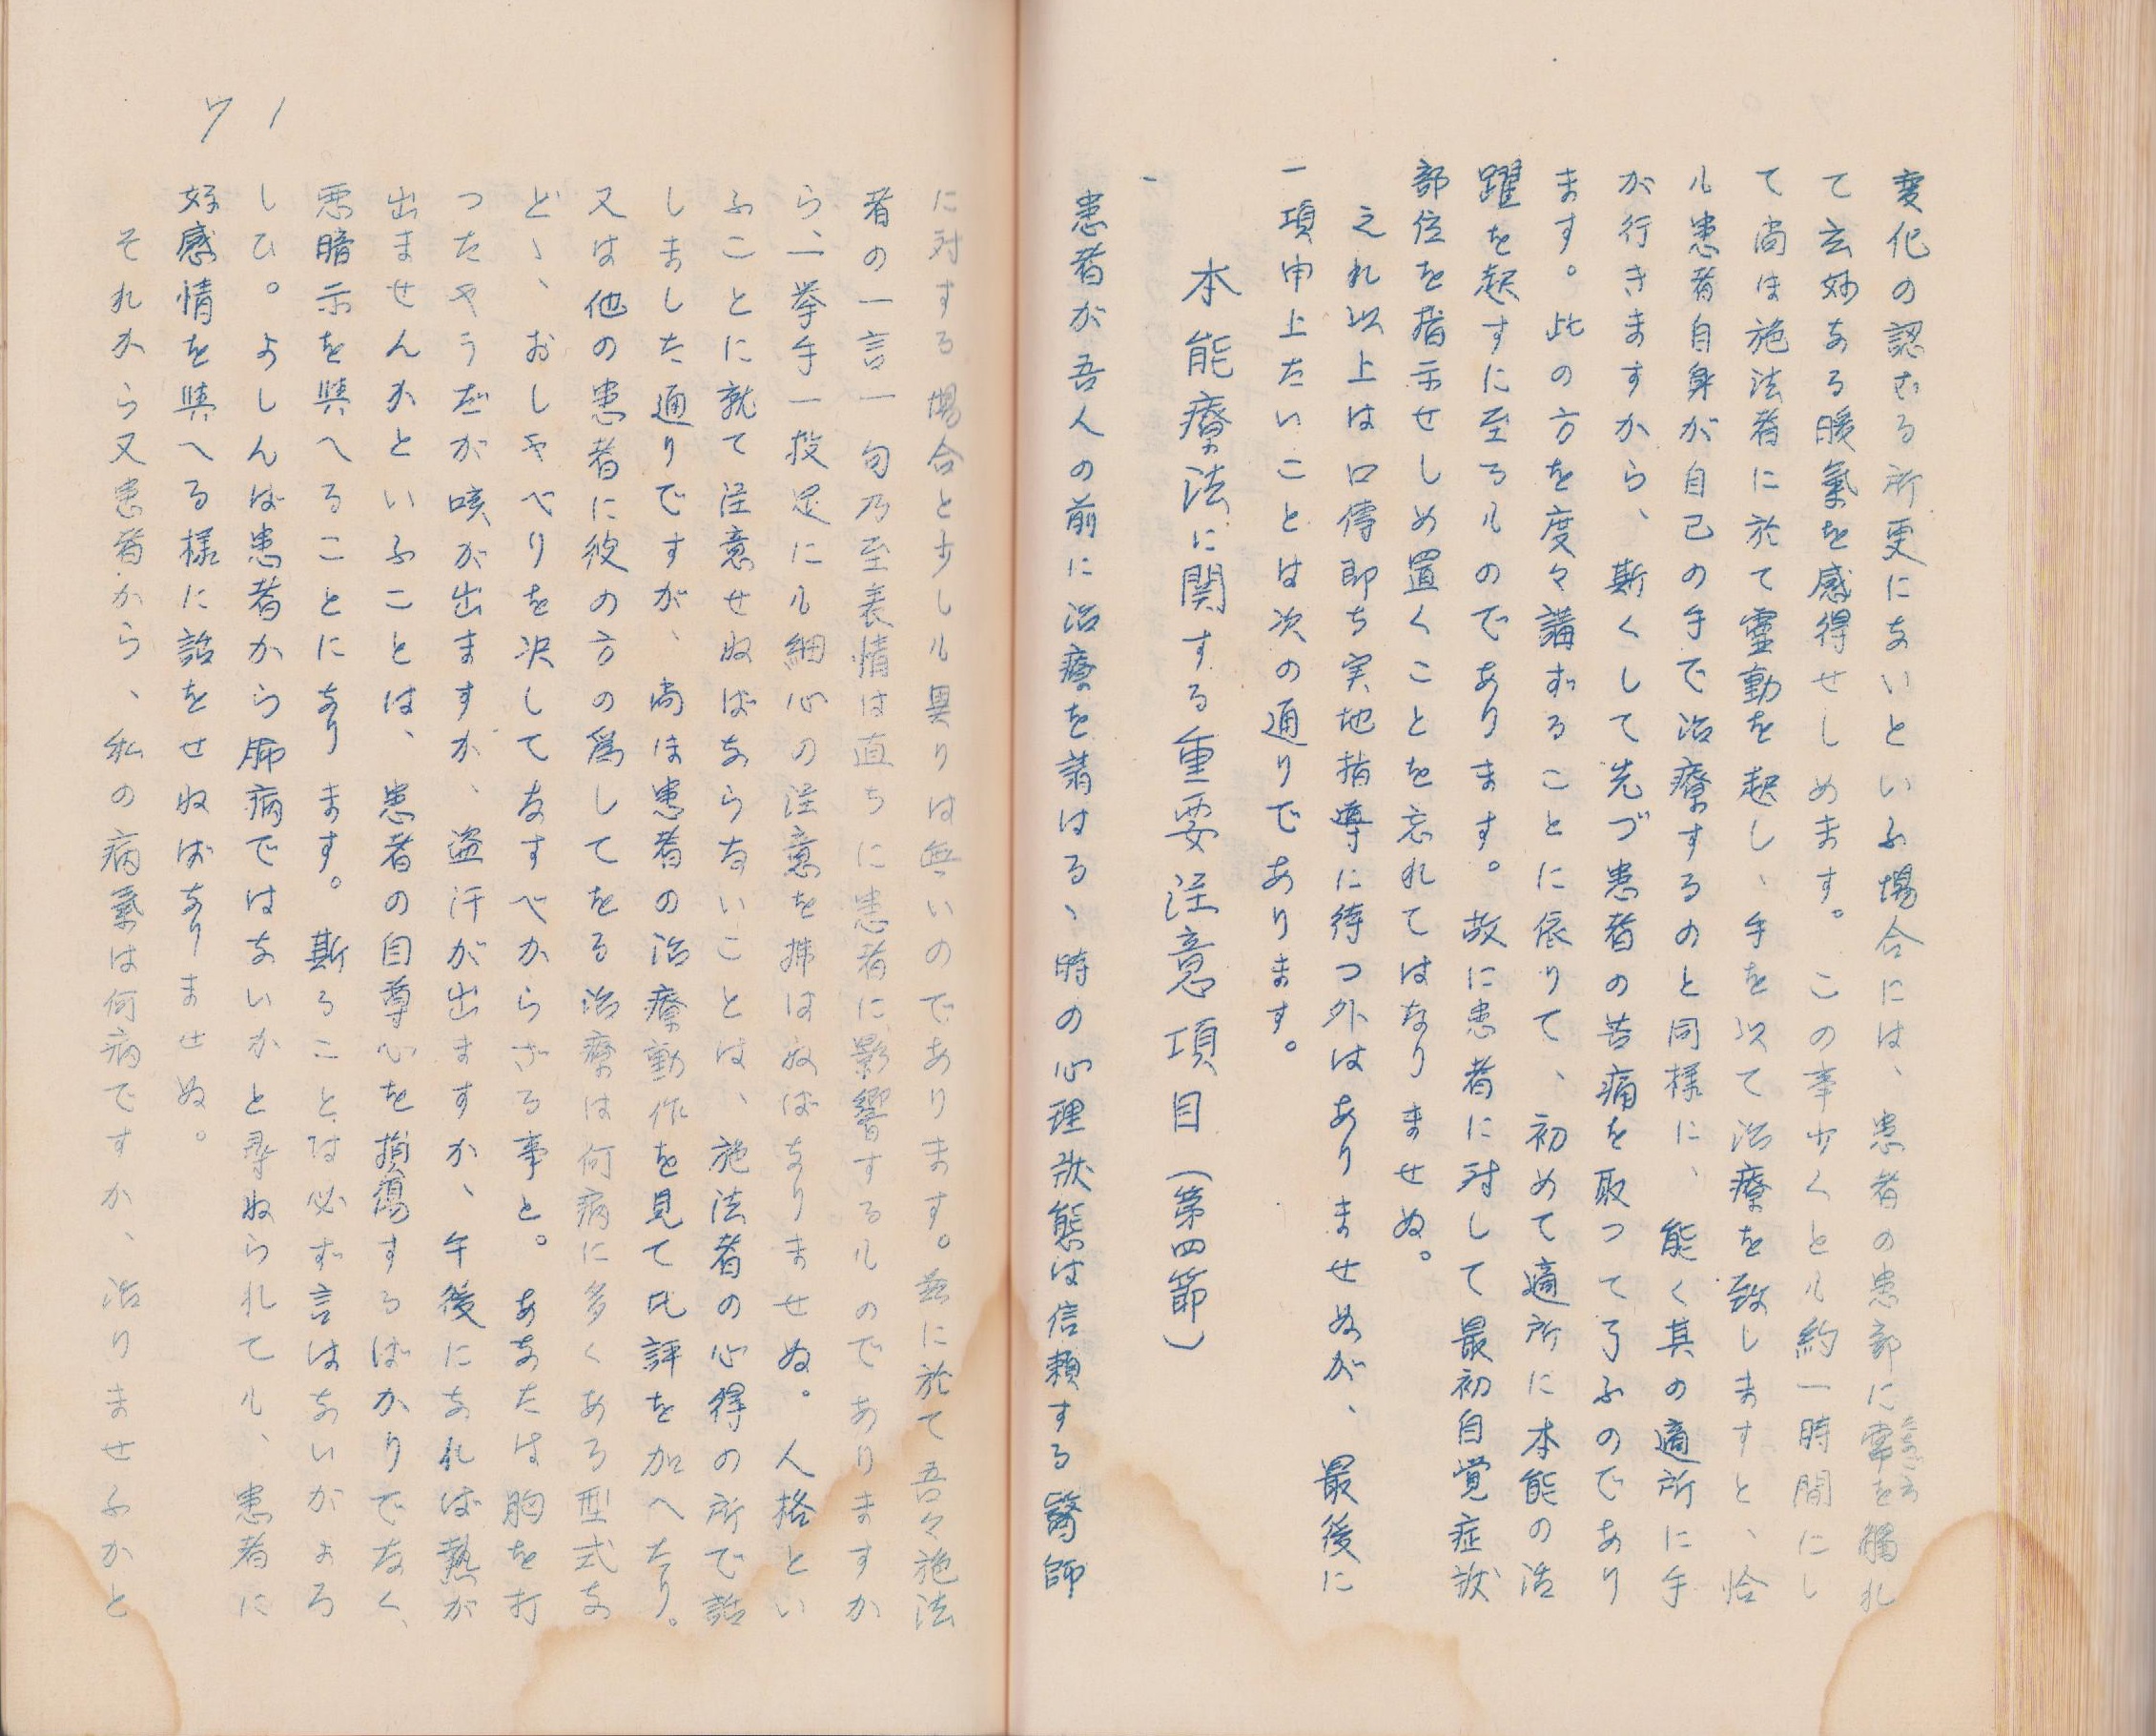 変化の認むる所更にないといふ場合には、患者の患部に掌を觸れ
たなごころ
て玄妙なる暖氣を感得せしめます。この事少くとル約一時間にし
て尚ほ施法者に於て靈動を起し、手を以て治療を致しますと、恰
ル患者自身が自己の手で治療するのと同様に、能く其の適所に手
が行きますから、斯くして先づ患者の苦痛を取って了ふのであり
ます。此の方を度々講ずることに依りて、初めて適所に本能の活
躍を起すに至るルのであります。故に患者に対して最初自覚症状
部位を指示せしめ置くことを忘れてはなりませぬ。
之れ以上は口傳即ち実地指導に待つ外はありませぬが、最後に
一項申上たいことは次の通りであります。
本能療法に関する重要注意項目(第四節)
一
患者が吾人の前に治療を請はるゝ時の心理状態は信頼する醫師
に対する場合と少しル異りは無いのであります。茲に於て吾々施法
者の一言一句乃至表情は直ちに患者に影響するルのでありますか
ら、一挙手一投足にル細心の注意を拂はぬばなりませぬ。人格とい
ふことに就て注意せぬばならないことは、施法者の心得の所で話
しました通りですが、尚ほ患者の治療動作を見て批評を加へたり。
又は他の患者に彼の方の為してをる治療は何病に多くある型式な
どゝ、おしゃべりを決してなすべからざる事と。あなたは胸を打
つたやうだが咳が出ますか、盗汗が出ますか、午後になれば熱が
出ませんかといふことは、患者の自尊心を損傷するばかりでなく、
悪暗示を與へることになります。斯ることは必ず言はないがよろ
しひ。よしんば患者から肺病ではないかと尋ぬられてル、患者に
好感情を與へる様に話をせぬばなりませぬ。
それから又患者から、私の病氣は何病ですか、治りませふかと
71